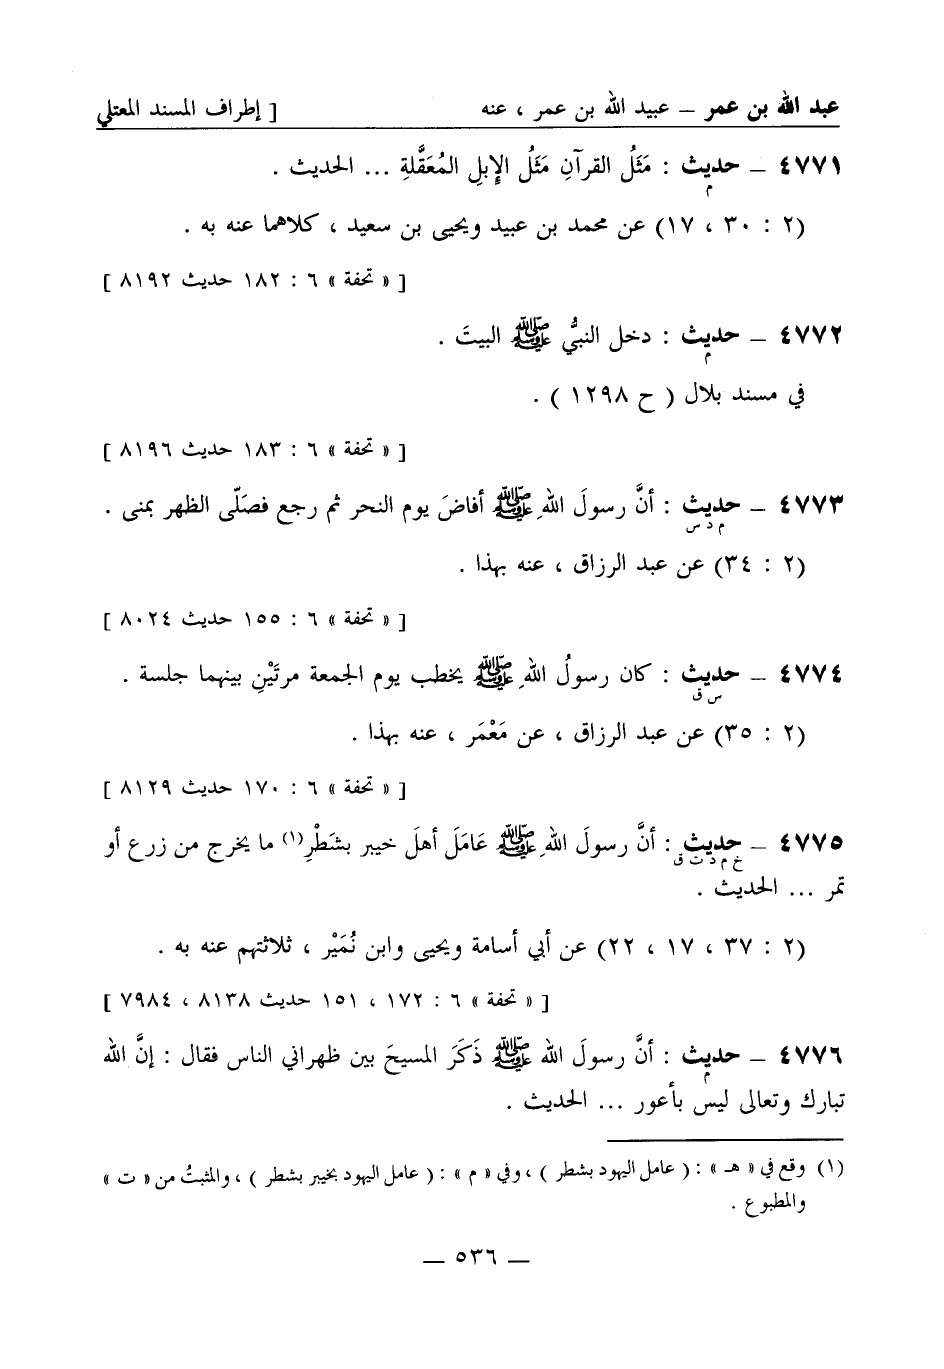 عبد الله بن عمر – عبيد الله بن عمر ، عنه [ إطراف المسند المعتلي
٤٧٧١ – حديث : مَثَلُ القرآنِ مَثَلُ الإبلِ المُعَقَّلةِ ... الحديث .
م
(٢ : ٣٠ ، ١٧) عن محمد بن عبيد ويحيى بن سعيد ، كلاهما عنه به .
[ « تحفة » ٦ : ١٨٢ حديث ٨١٩٢ ]
٤٧٧٢ – حديث : دخل النبيُّ ﷺ البيتَ .
م
في مسند بلال ( ح ١٢٩٨ ) .
[ « تحفة » ٦ : ١٨٣ حديث ٨١٩٦ ]
٤٧٧٣ – حديث : أنَّ رسولَ اللهِ ﷺ أفاضَ يوم النحر ثم رجع فصَلّى الظهر بمنى .
م د س
(٢ : ٣٤) عن عبد الرزاق ، عنه بهذا .
[ « تحفة » ٦ : ١٥٥ حديث ٨٠٢٤ ]
٤٧٧٤ – حديث : كان رسولُ اللهِ ﷺ يخطب يوم الجمعة مرتَيْنِ بينهما جلسة .
س ق
(٢ : ٣٥) عن عبد الرزاق ، عن مَعْمَر ، عنه بهذا .
[ « تحفة » ٦ : ١٧٠ حديث ٨١٢٩ ]
٤٧٧٥ – حديث : أنَّ رسولَ اللهِ ﷺ عَامَلَ أهلَ خيبر بشَطْرِ(١) ما يخرج من زرع أو
خ م د ت ق
تمر ... الحديث .
(٢ : ٣٧ ، ١٧ ، ٢٢) عن أبي أسامة ويحيى وابن نُمَيْر ، ثلاثتهم عنه به .
[ « تحفة » ٦ : ١٧٢ ، ١٥١ حديث ٨١٣٨ ، ٧٩٨٤ ]
٤٧٧٦ – حديث : أنَّ رسولَ الله ﷺ ذَكَرَ المسيحَ بين ظهراني الناس فقال : إنَّ الله
م
تبارك وتعالى ليس بأعور ... الحديث .
(١) وقع في « هـ » : ( عامل اليهود بشطر ) ، وفي « م » : ( عامل اليهود بخيبر بشطر ) ، والمثبتُ من « ت »
والمطبوع .
– ٥٣٦ –